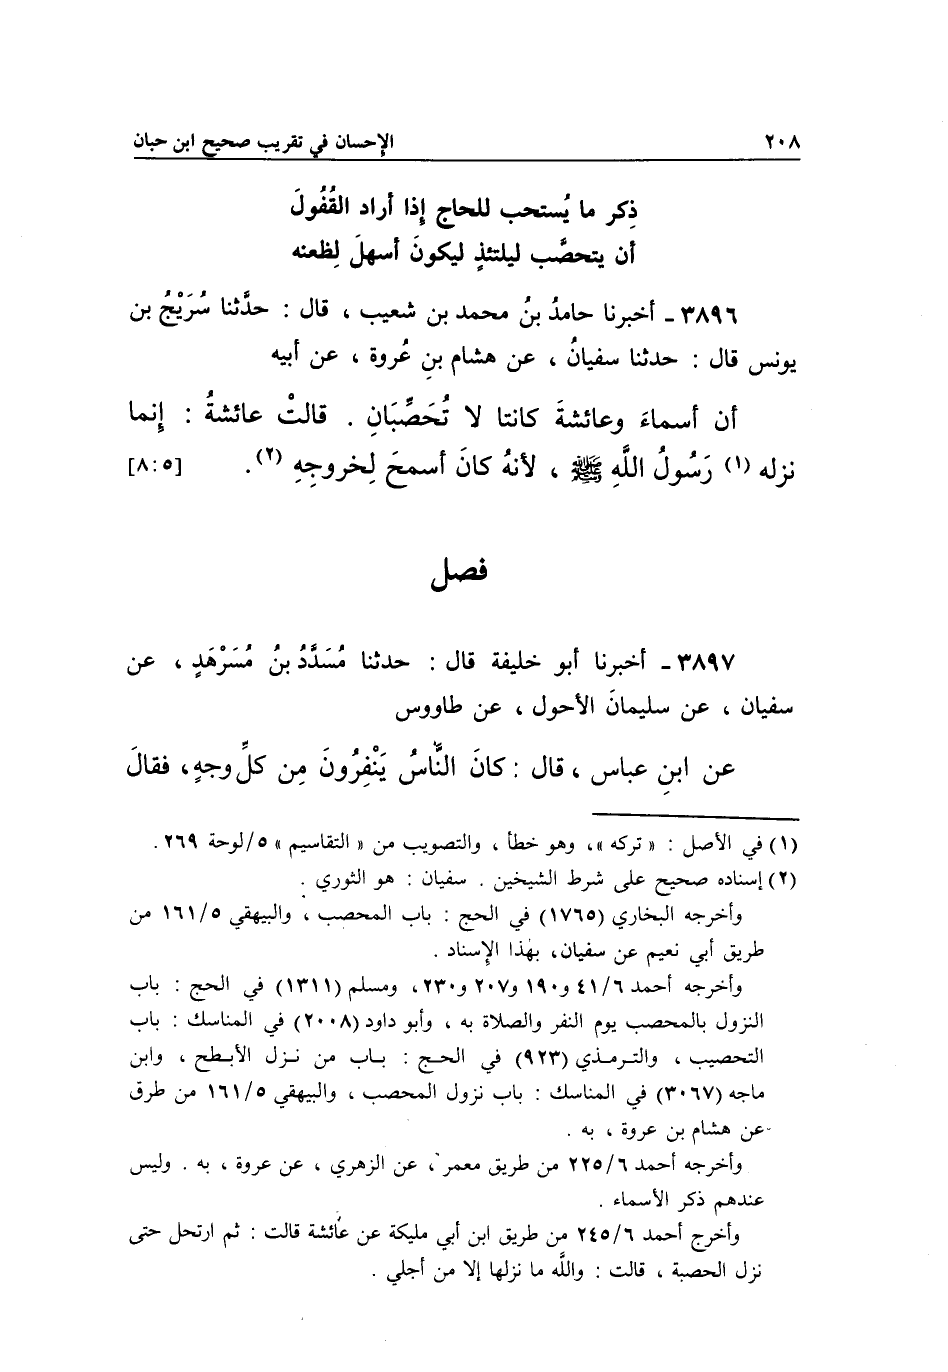 ٢٠٨ الإحسان في تقريب صحيح ابن حبان
ذِكر ما يُستحب للحاج إِذا أراد القُفُولَ
أن يتحصَّب ليلتئذٍ ليكونَ أسهلَ لِظعنه
٣٨٩٦ ـ أخبرنا حامدُ بنُ محمد بن شعيب ، قال : حدَّثنا سُرَيْجُ بن
يونس قال : حدثنا سفيانُ ، عن هشام بنِ عُروة ، عن أبيه
أن أسماءَ وعائشةَ كانتا لا تُحَصِّبَانِ . قالتْ عائشةُ : إِنما
نزله (١) رَسُولُ اللَّهِ ﷺ ، لأنهُ كانَ أسمحَ لِخروجِهِ (٢) . [٥ : ٨]
فصل
٣٨٩٧ ـ أخبرنا أبو خليفة قال : حدثنا مُسَدَّدُ بنُ مُسَرْهَدٍ ، عن
سفيان ، عن سليمانَ الأحول ، عن طاووس
عن ابنِ عباس ، قال : كانَ النَّاسُ يَنْفِرُونَ مِن كلِّ وجهٍ ، فقالَ
(١) في الأصل : « تركه » ، وهو خطأ ، والتصويب من « التقاسيم » ٥/لوحة ٢٦٩ .
(٢) إسناده صحيح على شرط الشيخين . سفيان : هو الثوري .
وأخرجه البخاري (١٧٦٥) في الحج : باب المحصب ، والبيهقي ١٦١/٥ من
طريق أبي نعيم عن سفيان، بهذا الإسناد .
وأخرجه أحمد ٤١/٦ و١٩٠ و٢٠٧ و٢٣٠، ومسلم (١٣١١) في الحج : باب
النزول بالمحصب يوم النفر والصلاة به ، وأبو داود (٢٠٠٨) في المناسك : باب
التحصيب ، والترمذي (٩٢٣) في الحج : باب من نزل الأبطح ، وابن
ماجه (٣٠٦٧) في المناسك : باب نزول المحصب ، والبيهقي ١٦١/٥ من طرق
عن هشام بن عروة ، به .
وأخرجه أحمد ٢٢٥/٦ من طريق معمر ، عن الزهري ، عن عروة ، به . وليس
عندهم ذكر الأسماء .
وأخرج أحمد ٢٤٥/٦ من طريق ابن أبي مليكة عن عائشة قالت : ثم ارتحل حتى
نزل الحصبة ، قالت : واللَّه ما نزلها إلا من أجلي .